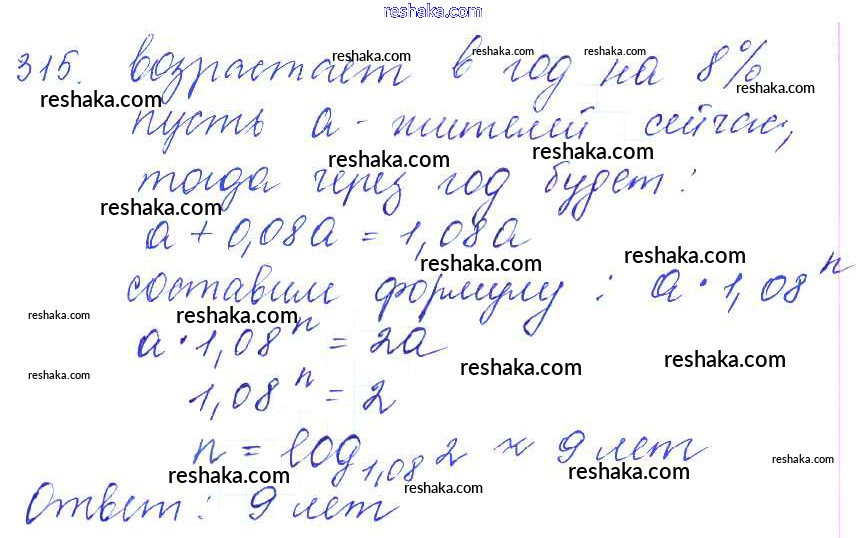 reshaka.com
315. возрастает в год на 8%
reshaka.com reshaka.com reshaka.com
reshaka.com reshaka.com
пусть а - жителей сейчас,
reshaka.com reshaka.com
тогда через год будет:
reshaka.com
а + 0,08а = 1,08а
reshaka.com reshaka.com
составим формулу: а · 1,08^n
reshaka.com reshaka.com
а · 1,08^n = 2а
reshaka.com reshaka.com reshaka.com
1,08^n = 2
n = log_1,08 2 ≈ 9 лет
reshaka.com reshaka.com reshaka.com
reshaka.com
Ответ: 9 лет